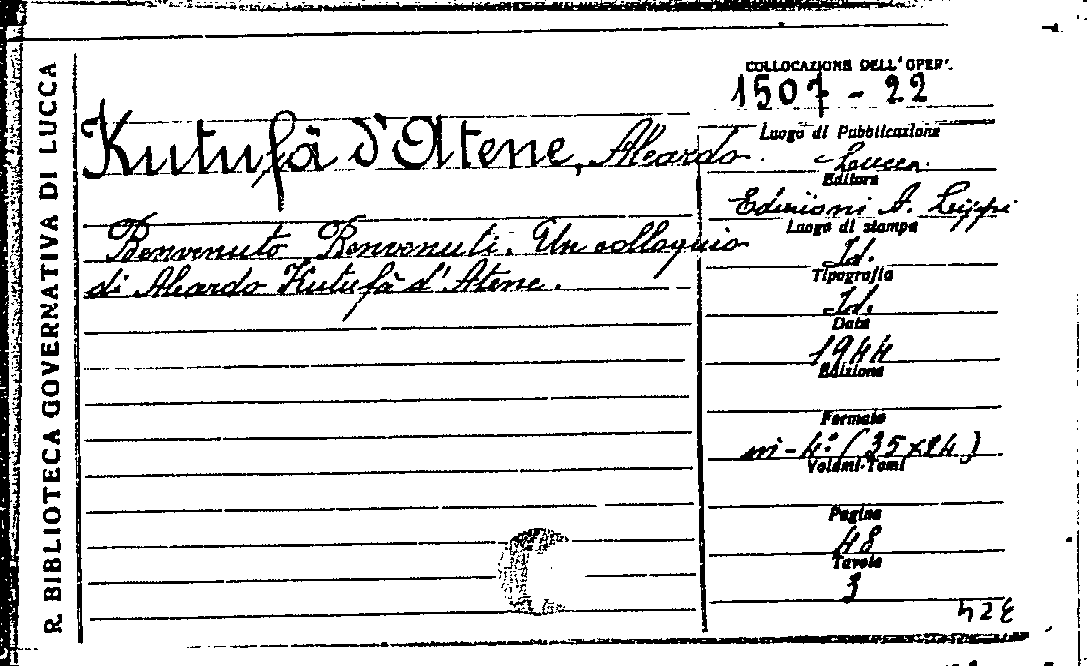 R. BIBLIOTECA GOVERNATIVA DI LUCCA
COLLOCAZIONE DELL'OPER.
1507 - 22
Kutufà d'Atene, Aleardo.
Benvenuto Benvenuti. Un colloquio
di Aleardo Kutufà d'Atene.
Luogo di Pubblicazione
Lucca.
Editore
Edizioni A. Lippi
Luogo di stampa
Id.
Tipografia
Id.
Data
1944
Edizione
Formato
in-4° (35x24)
Volumi-Tomi
Pagine
48
Tavole
3